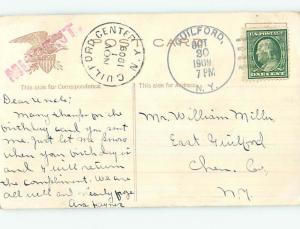 MISSENT.
GUILFORD CENTER, N.Y.
NOV
1
1909
CA
GUILFORD,
OCT
30
1909
7 PM
N.Y.
ONE CENT
This side for Correspondence
This side for Address
Dear Uncle:
Many thanks for the
birthday card you sent
me. Just let me know
when your birthday is
and I will return
the compliment. We are
all well and
Mr. William Miller
East Guilford
Chen. Co.
N.Y.